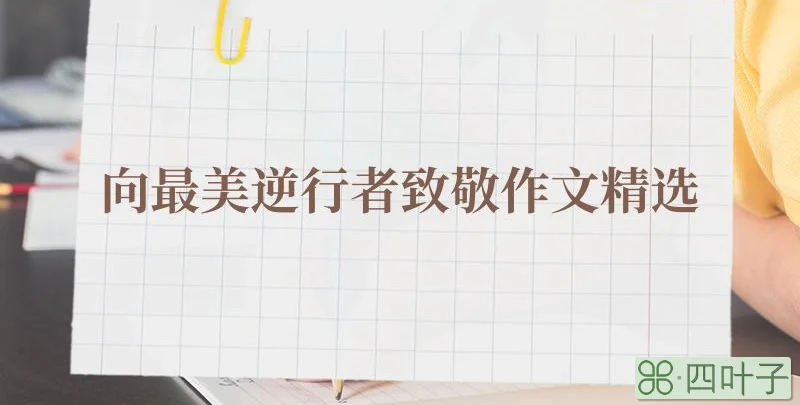 向最美逆行者致敬作文精选
四叶子